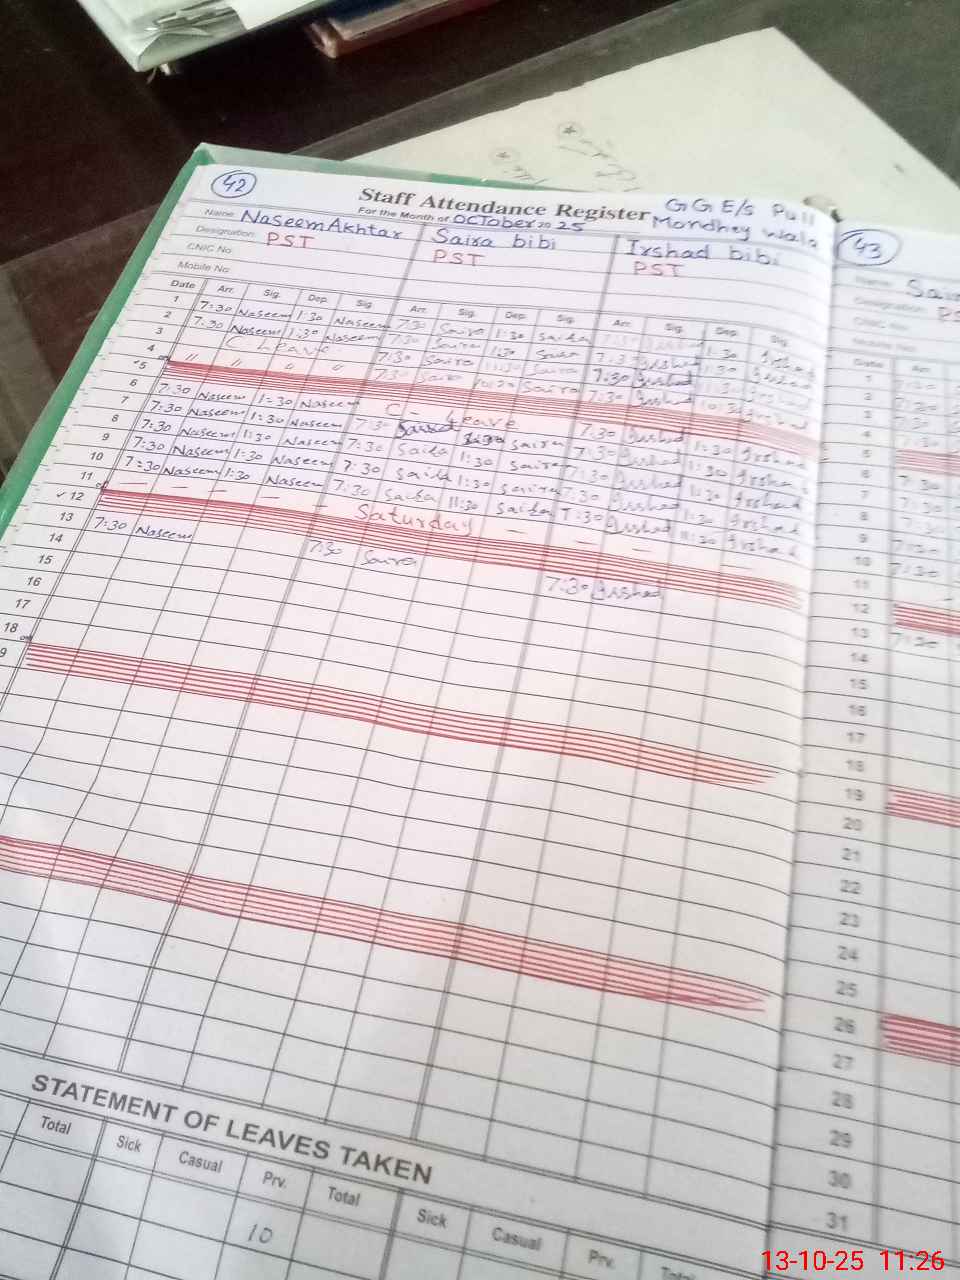 42
Staff Attendance Register
GGE/s Pull
For the Month of October 2025
Mondhey Wala
43
Name: Naseem Akhtar Saira bibi Irshad bibi
Designation: PST PST PST
CNIC No
Mobile No
Date Arr. Sig. Dep. Sig. Arr. Sig. Dep. Sig. Arr. Sig. Dep. Sig.
1 7:30 Naseem 1:30 Naseem 7:30 Saira 1:30 Saira 1:30 Irshad
2 7:30 Naseem 1:30 Naseem 7:30 Saira 1:30 Saira 7:30 Irshad 1:30 Irshad
3 C Leave 7:30 Saira 11:30 Saira 7:30 Irshad 11:30 Irshad
4 " " " " 7:30 Saira Saira 7:30 Irshad 10:30 Irshad
5
6 7:30 Naseem 1:30 Naseem C - Leave 7:30 Irshad 1:30 Irshad
7 7:30 Naseem 1:30 Naseem 7:30 Saira 7:30 Irshad 1:30 Irshad
8 7:30 Naseem 1:30 Naseem 7:30 Saira 1:30 Saira 7:30 Irshad 1:30 Irshad
9 7:30 Naseem 1:30 Naseem 7:30 Saira 1:30 Saira 7:30 Irshad 11:30 Irshad
10 7:30 Naseem 1:30 Naseem 7:30 Saira 11:30 Saira 7:30 Irshad 11:30 Irshad
11 — — — — — Saturday — — — —
12
13 7:30 Naseem 7:30 Saira 7:30 Irshad
14
15
16
17
18
9
Date
2
3
4
5
6
7
8
9
10
11
12
13 7:30
14
15
16
17
18
19
20
21
22
23
24
25
26
27
28
29
30
31
STATEMENT OF LEAVES TAKEN
Total Sick Casual Prv. Total Sick Casual Prv. Total
10
13-10-25 11:26